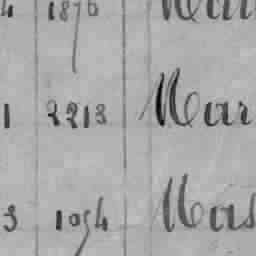 4 1876 Mar
1 2213 Mar
3 1054 Mas